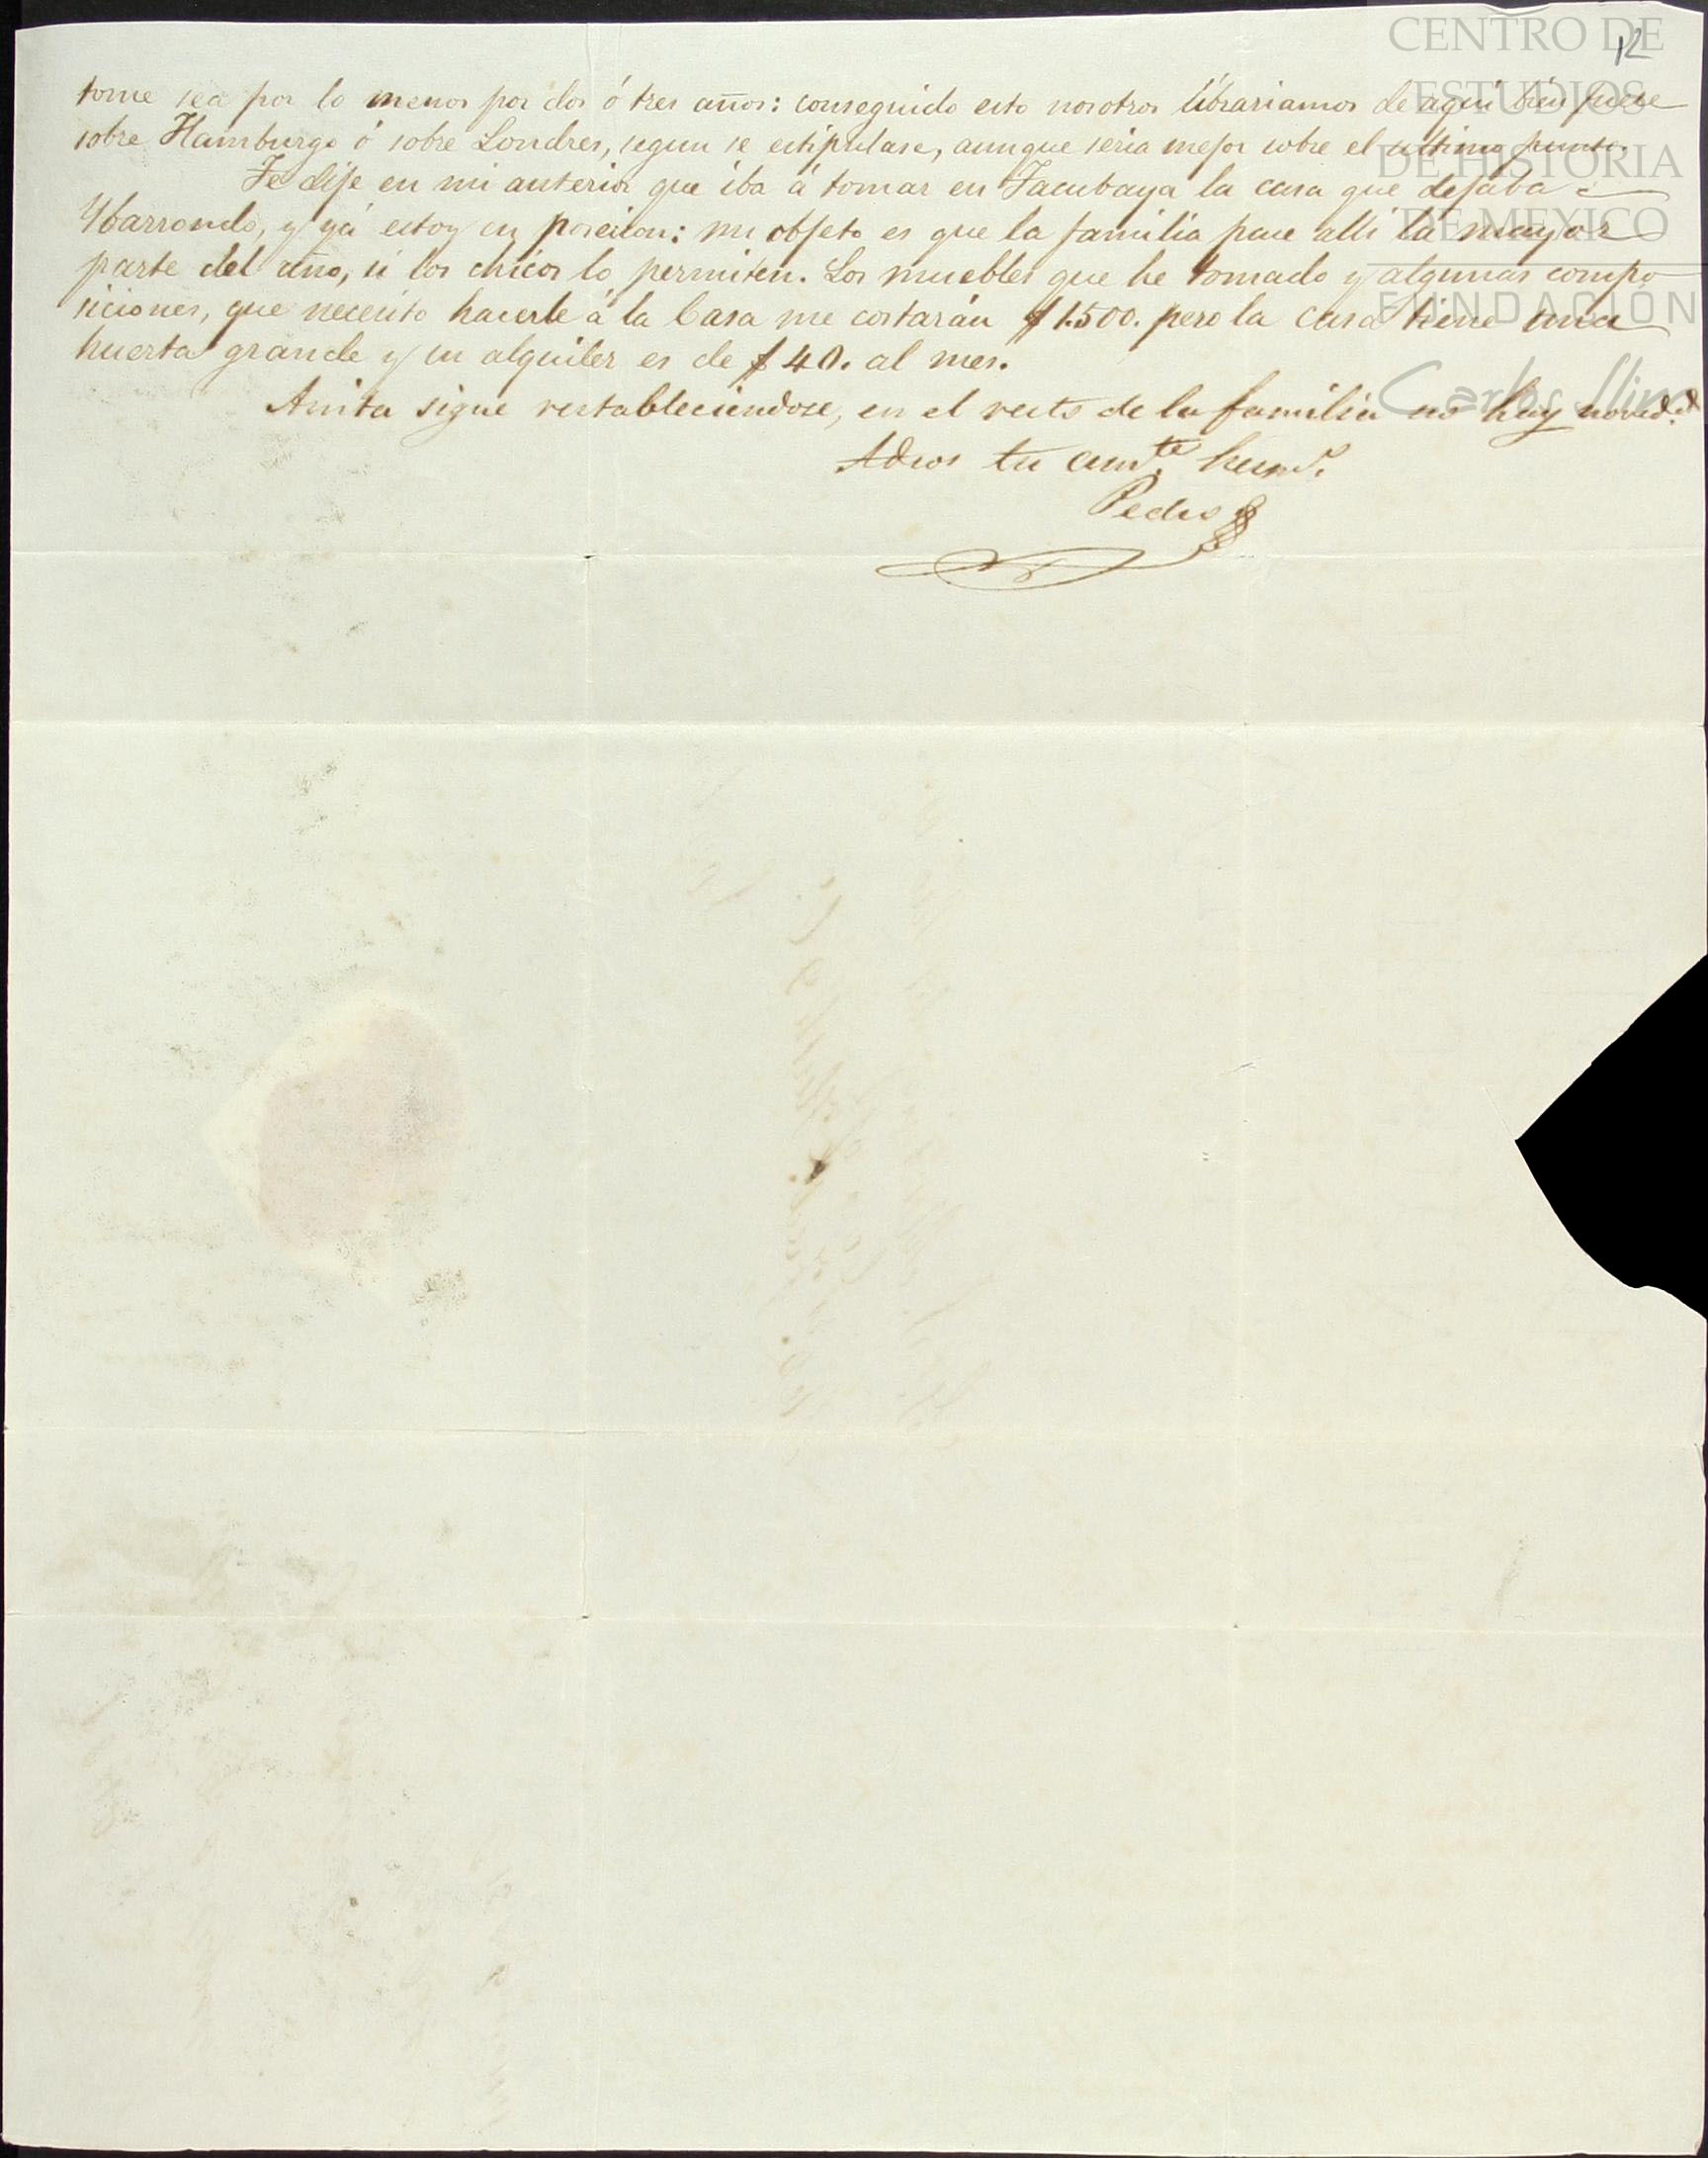 12
CENTRO DE
ESTUDIOS
DE HISTORIA
DE MEXICO
FUNDACIÓN
Carlos Slim
tome sea por lo menos por dos ó tres años: conseguido esto nosotros librariamos de aqui bien fuese
sobre Hamburgo ó sobre Londres, segun se estipulase, aunque seria mejor sobre el ultimo punto.
Te dije en mi anterior que iba á tomar en Tacubaya la casa que dejaba
Ybarrondo, y yá estoy en posecion: mi objeto es que la familia pase alli la mayor
parte del año, si los chicos lo permiten. Los muebles que he tomado y algunas compo
siciones, que necesito hacerle á la Casa me costarán $ 1.500. pero la casa tiene una
huerta grande y su alquiler es de $ 40. al mes.
Anita sigue restableciendose, en el resto de la familia no hay noved.d
Adios tu am.te herm.o
Pedro